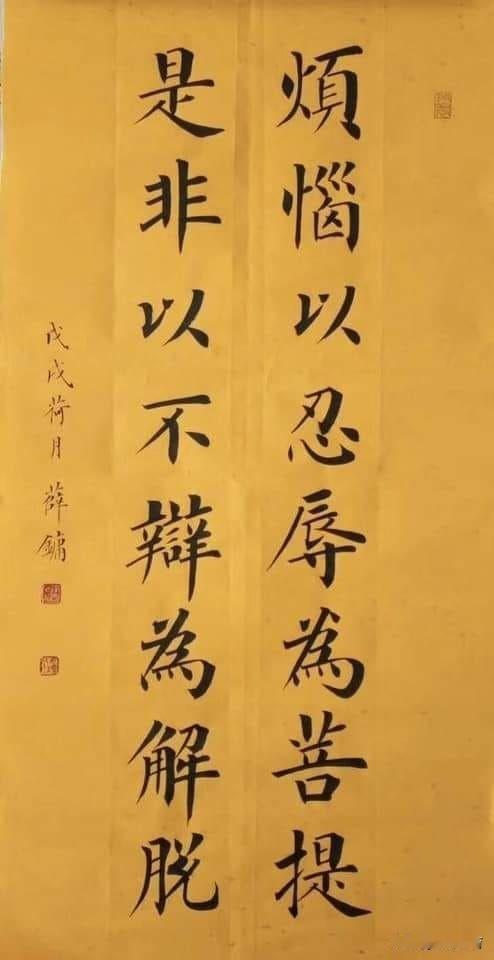 煩惱以忍辱為菩提
是非以不辯為解脫
戊戌荷月薛鏞